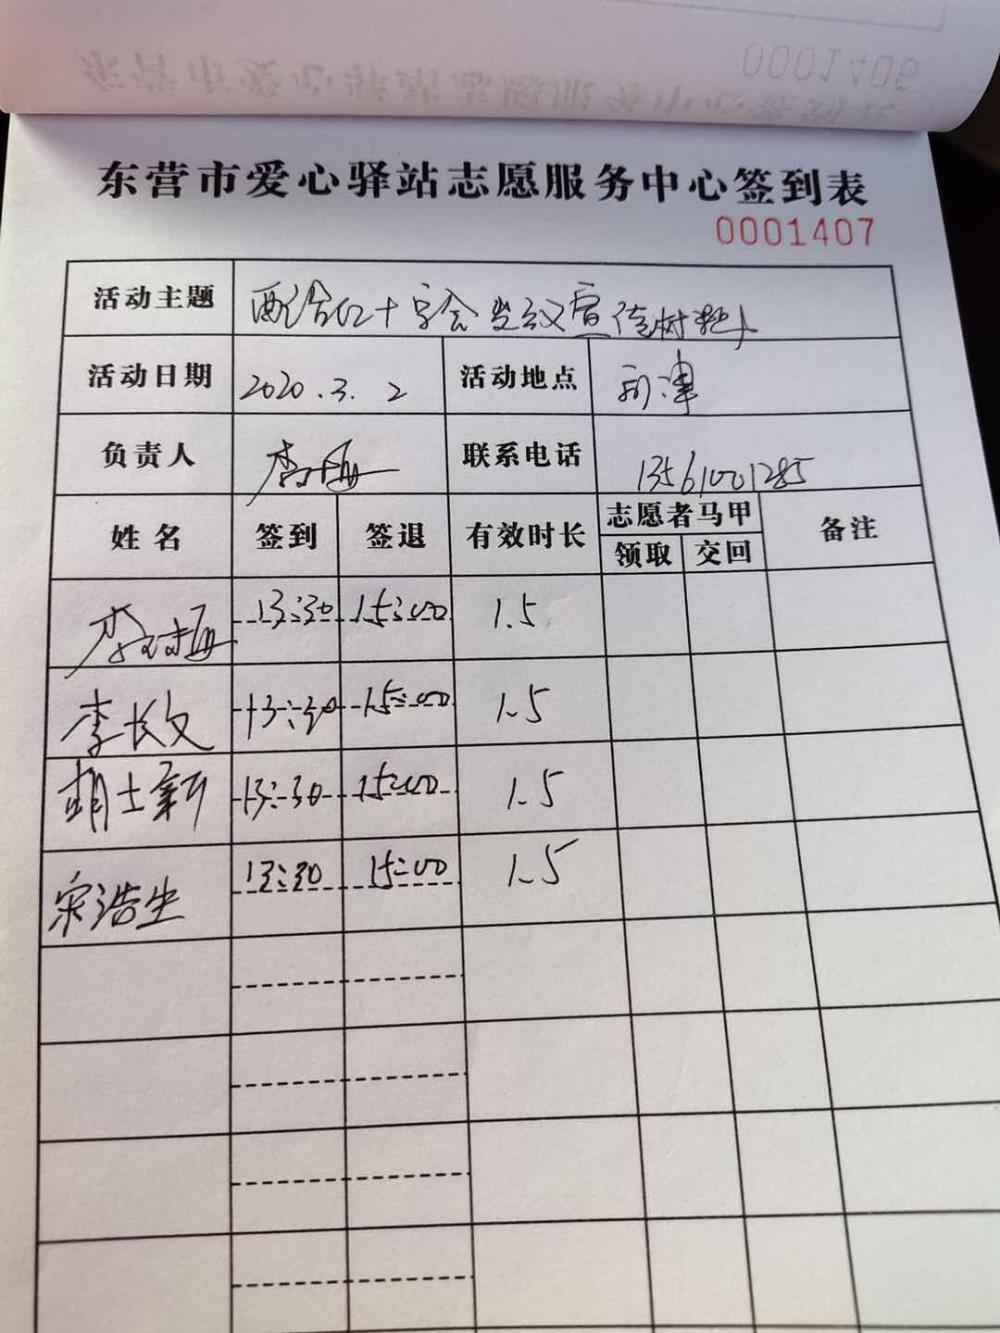 东营市爱心驿站志愿服务中心签到表
0001407
活动主题 配合红十字会 宣传
活动日期 2020.3.2 活动地点 利津
负责人 李 联系电话 13561001285
姓名 签到 签退 有效时长 志愿者马甲 备注
领取 交回
李 13:30 15:00 1.5
李长文 13:30 15:00 1.5
胡士新 13:30 15:00 1.5
宋浩生 13:30 15:00 1.5